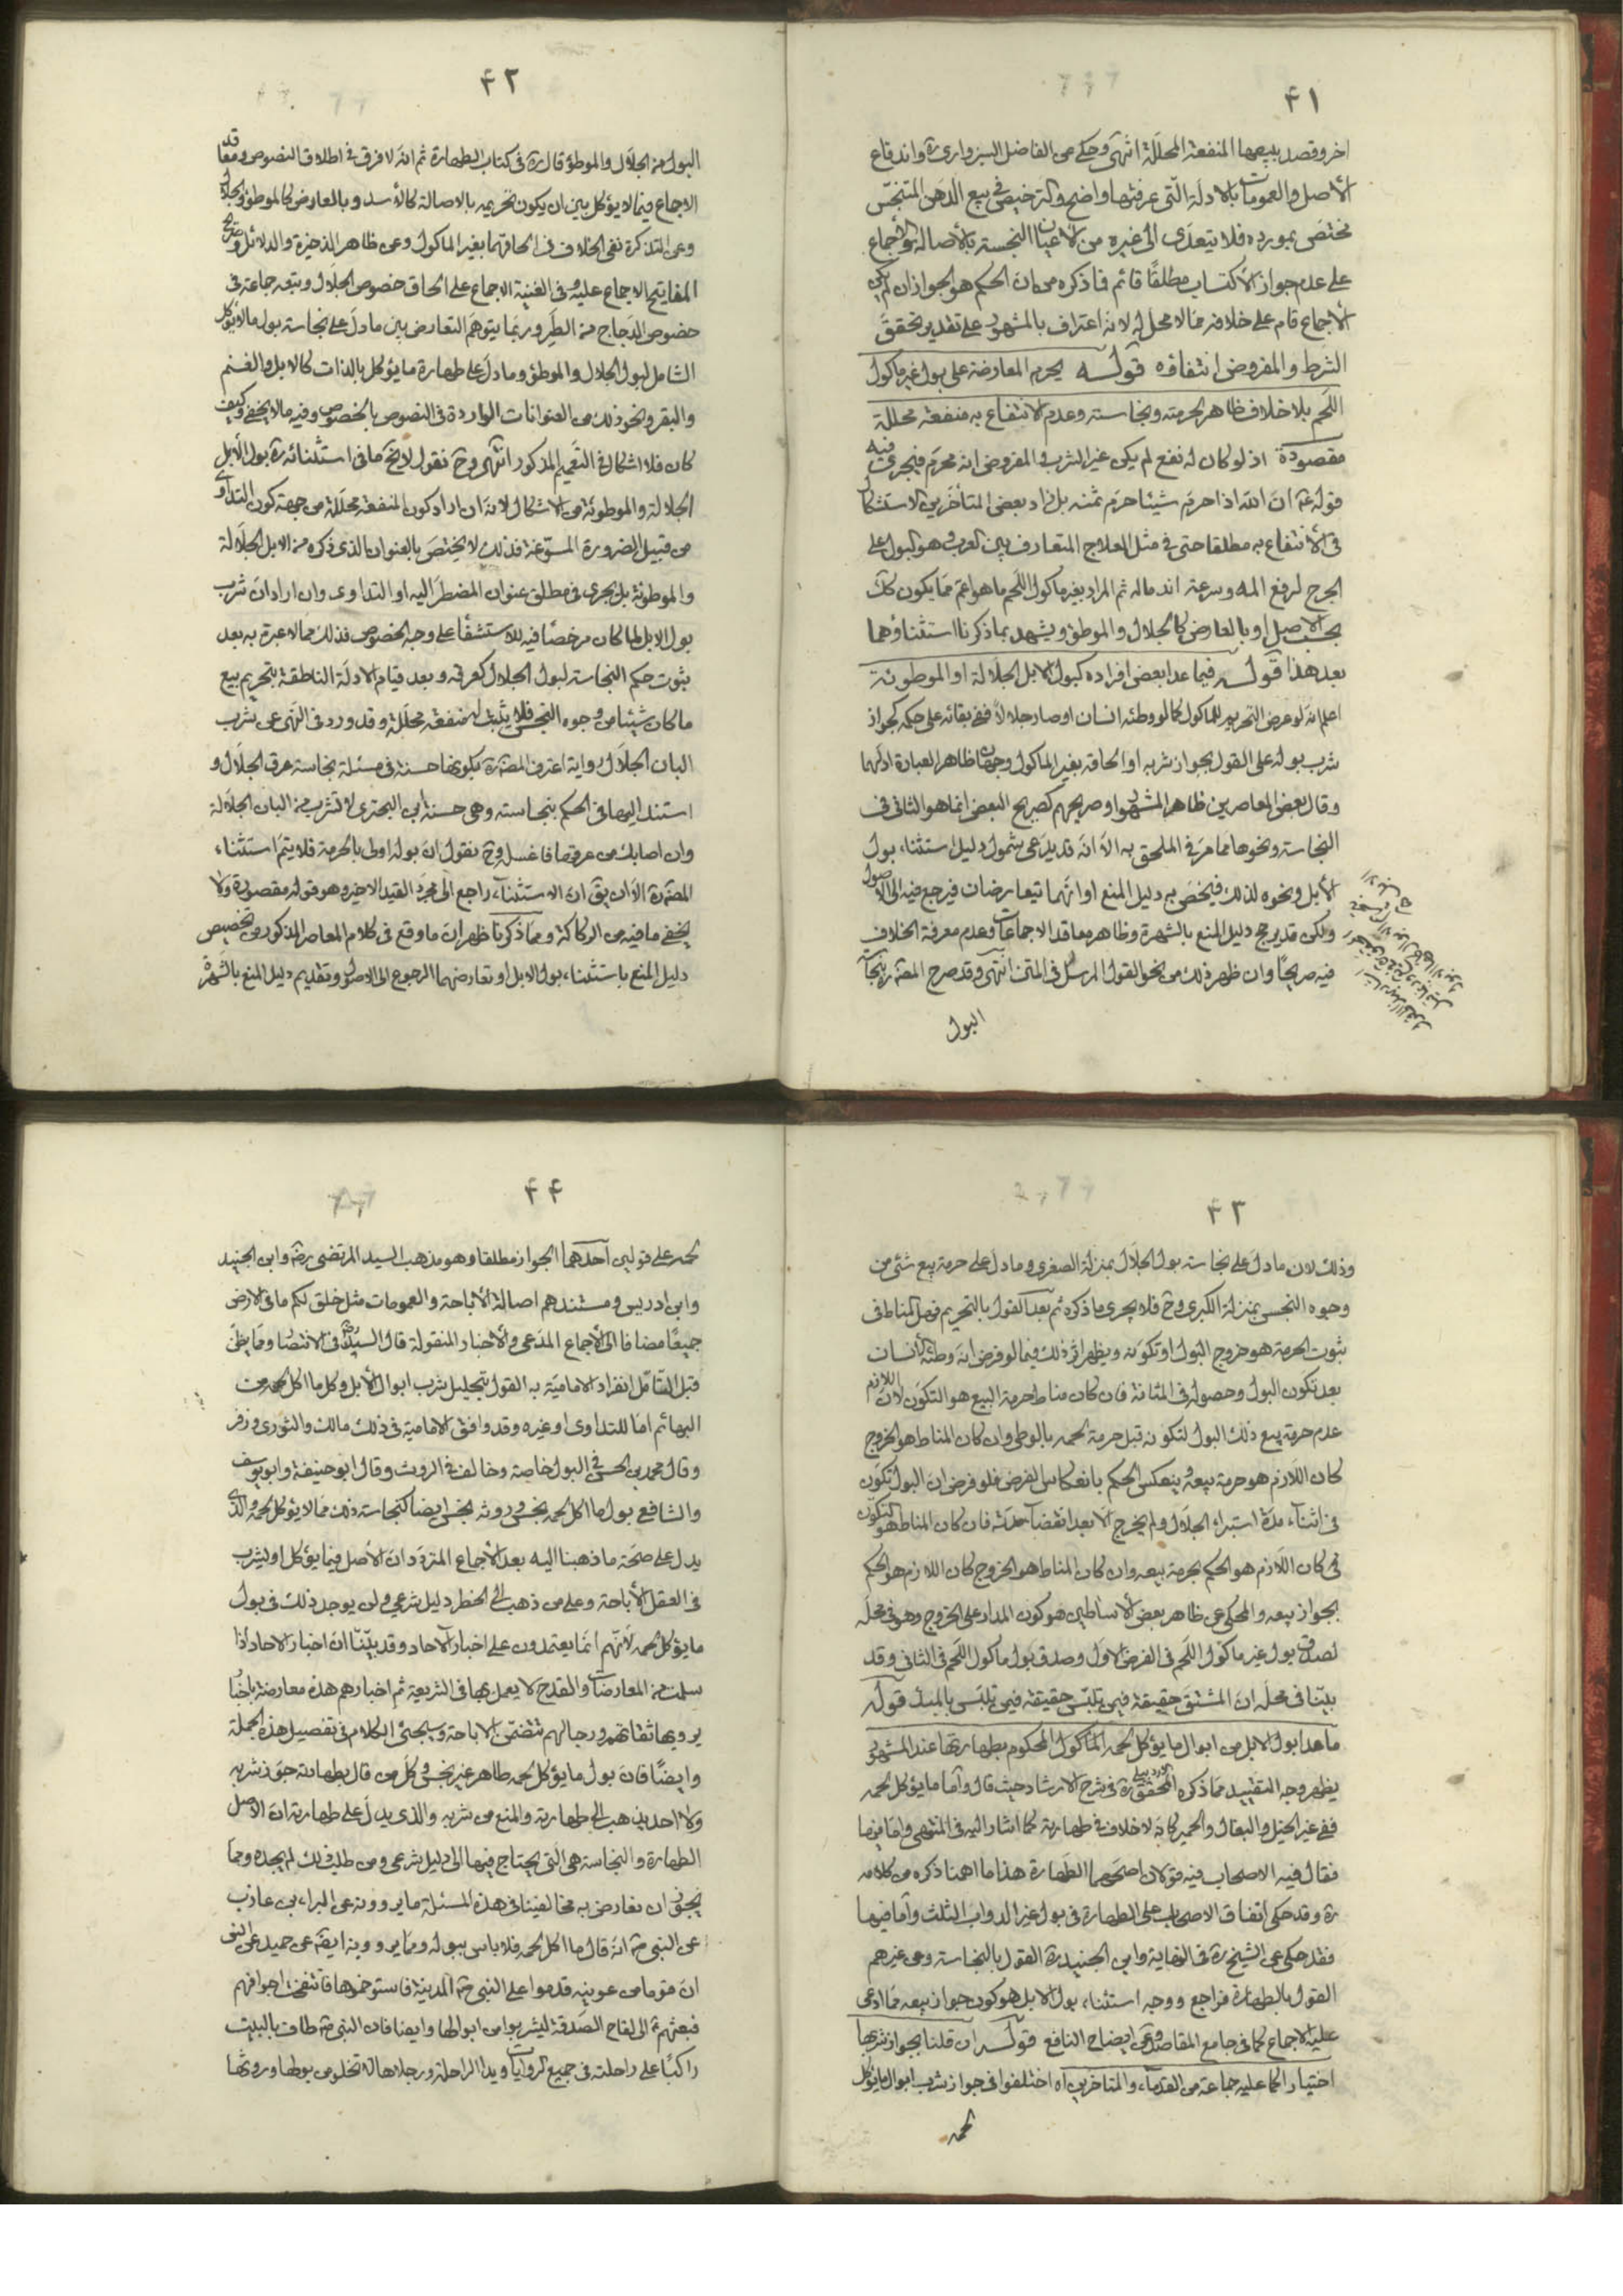 ۴۱
اخر وقصد ببيعها المنفعة المحللة انتهى وحكى عن الفاضل السبزوارى ره واندفاع
الأصل والعمومات بالادلة التى عرفتها واضح والترخيص فى بيع الدهن المتنجس
مختص بمورده فلا يتعدى الى غيره من الأعيان النجسة بالأصالة والأجماع
على عدم جواز الأكتساب مطلقًا قائم فما ذكره من ان الحكم هو الجواز ان لم يكن
الأجماع قام على خلافه مما لا محل له لانه اعتراف بالمشهور على تقدير تحقق
الشرط والمفروض انتفاؤه قوله يحرم المعارضة على بول غير ماكول
اللحم بلا خلاف ظاهر لحرمته ونجاسته وعدم الانتفاع به منفعة محللة
مقصودة اذ لو كان له نفع لم يكن غير الشرب والمفروض انه محرم فيجرى فيه
قوله ع ان الله اذا حرم شيئا حرم ثمنه بل زاد بعض المتأخرين الاستشكال
فى الأنتفاع به مطلقا حتى فى مثل العلاج المتعارف بين العرب وهو البول على
الجرح لرفع المه وسرعة اندماله ثم المراد بغير ماكول اللحم ما هو اعم مما يكون كك
بحسب الاصل او بالعارض كالجلال والموطوء ويشهد بما ذكرنا استثناؤهما
بعد هذا قوله فيما عدا بعض افراده كبول الابل الجلالة او الموطوئة
اعلم انه لو عرض التحريم للماكول كما لو وطئه انسان او صار جلالا ففى بقائه على حكمه كجواز
شرب بوله على القول بجواز شربه او الحاقه بغير الماكول وجهان ظاهر العبارة اولهما
وقال بعض المعاصرين ظاهر المشهور او صريحهم كصريح البعض انما هو الثانى فى
النجاسة ونحوها مما مر فى الملحق به الا انه قد يدعى شمول دليل استثناء بول
الأبل ونحوه لذلك فيخص به دليل المنع او انهما يتعارضان فيرجع فيه الى الاصول
ولكن قد يرجح دليل المنع بالشهرة وظاهر معاقد الاجماعات وعدم معرفة الخلاف
فيه صريحًا وان ظهر ذلك من نحو القول المرسل فى المتن انتهى وقد صرح المصنف ره بنجاسة
البول
۴۲
البول من الجلال والموطوء قال ره فى كتاب الطهارة ثم انه لا فرق فى اطلاق النصوص ومعاقد
الاجماع فيما لا يؤكل بين ان يكون تحريمه بالاصالة كالأسد وبالعارض كالموطوء والجلال
وعن التذكرة نفى الخلاف فى الحاقهما بغير الماكول وعن ظاهر الذخيرة والدلائل وصريح
المفاتيح الاجماع عليه وفى الغنية الاجماع على الحاق خصوص الجلال وتبعه جماعة فى
خصوص الدجاج من الطير وربما يتوهم التعارض بين ما دل على نجاسة بول ما لا يؤكل
الشامل لبول الجلال والموطوء وما دل على طهارة ما يؤكل بالذات كالابل والغنم
والبقر ونحو ذلك من العنوانات الواردة فى النصوص بالخصوص وفيه ما لا يخفى وكيف
كان فلا اشكال فى التعميم المذكور انتهى وح نقول لا يخ ما فى استثنائه ره بول الأبل
الجلالة والموطوئة من الاشكال لانه ان اراد كون المنفعة محللة من جهة كون التداوى
من قبيل الضرورة المسوغة فذلك لا يختص بالعنوان الذى ذكره من الابل الجلالة
والموطوئة بل يجرى فى مطلق عنوان المضطر اليه او التداوى وان اراد ان شرب
بول الابل لما كان مرخصًا فيه للاستشفاء على وجه الخصوص فذلك مما لا عبرة به بعد
ثبوت حكم النجاسة لبول الجلال كعرقه وبعد قيام الادلة الناطقة بتحريم بيع
ما كان شيئا من وجوه النجس فلا يثبت له منفعة محللة وقد ورد فى النهى عن شرب
البان الجلال رواية اعترف المصنف ره بكونها حسنة فى مسئلة نجاسة عرق الجلال و
استند اليها فى الحكم بنجاسته وهى حسنة ابى البخترى لا تشرب من البان الجلالة
وان اصابك من عرقها فاغسله وح نقول ان بوله اولى بالحرمة فلا يتم استثناء
المصنف ره الا ان يق ان الاستثناء راجع الى مجرد القيد الاخير وهو قوله مقصودة ولا
يخفى ما فيه من الركاكة ومما ذكرنا ظهر ان ما وقع فى كلام المعاصر المذكور من تخصيص
دليل المنع باستثناء بول الابل او تعارضهما الرجوع الى الاصول وتقديم دليل المنع بالشهرة
۴۳
وذلك لان ما دل على نجاسة بول الجلال بمنزلة الصغرى وما دل على حرمة بيع شئ من
وجوه النجس بمنزلة الكبرى وح فلا يجرى ما ذكره ثم بعد القول بالتحريم فهل المناط فى
ثبوت الحرمة هو خروج البول او تكونه ويظهر اثر ذلك فيما لو فرض انه وطئه الأنسان
بعد تكون البول وحصوله فى المثانة فان كان مناط حرمة البيع هو التكون لان اللازم
عدم حرمة بيع ذلك البول لتكونه قبل حرمة لحمه بالوطى وان كان المناط هو الخروج
كان اللازم هو حرمة بيعه وينعكس الحكم بانعكاس الفرض فلو فرض ان البول تكون
فى اثناء مدة استبراء الجلال ولم يخرج الا بعد انقضاء مدته فان كان المناط هو التكون
فى كان اللازم هو الحكم بحرمة بيعه وان كان المناط هو الخروج كان اللازم هو الحكم
بجواز بيعه والمحكى عن ظاهر بعض الأساطين هو كون المدار على الخروج وهو فى محله
لصدق بول غير ماكول اللحم فى الفرض الاول وصدق بول ماكول اللحم فى الثانى وقد
بينا فى محله ان المشتق حقيقة فيمن تلبس حقيقة فيمن تلبس بالمبدء قوله
ما عدا بول الابل من ابوال ما يؤكل لحمه الماكول المحكوم بطهارتها عند المشهور
يظهر وجه التقييد مما ذكره المحقق الاردبيلى ره فى شرح الارشاد حيث قال واما ما يؤكل لحمه
ففى غير الخيل والبغال والحمير كانه لا خلاف فى طهارته كما اشار اليه فى المنتهى واما فيها
فقال فيه الاصحاب فيه قولان اصحهما الطهارة هذا ما اهمنا ذكره من كلامه
ره وقد حكى اتفاق الاصحاب على الطهارة فى بول غير الدواب الثلث وأما فيها
فقد حكى عن الشيخ ره فى النهاية وابن الجنيد ره القول بالنجاسة وعن غيرهم
القول بالطهارة فراجع ووجه استثناء بول الابل هو كون جواز بيعه مما ادعى
عليه الاجماع كما فى جامع المقاصد وعن ايضاح النافع قوله ان قلنا بجواز شربها
اختيارا كما عليه جماعة من القدماء والمتاخرين اه اختلفوا فى جواز شرب ابوال ما يؤكل
لحمه
۴۴
لحمه على قولين احدهما الجواز مطلقا وهو مذهب السيد المرتضى رضه وابن الجنيد
وابن ادريس ومستندهم اصالة الأباحة والعمومات مثل خلق لكم ما فى الارض
جميعًا مضافا الى الأجماع المدعى والأخبار المنقولة قال السيد رضه فى الانتصار ومما يظن
قبل التأمل انفراد الامامية به القول بتحليل شرب ابوال الأبل وكل ما اكل لحمه من
البهائم اما للتداوى او غيره وقد وافق الامامية فى ذلك مالك والثورى وزفر
وقال محمد بن الحسن فى البول خاصة وخالف فى الروث وقال ابو حنيفة وابو يوسف
والشافعى بول ما اكل لحمه نجس وروثه نجس ايضا كنجاسة ذلك مما لا يؤكل لحمه والذى
يدل على صحة ما ذهبنا اليه بعد الأجماع المتردد ان الأصل فيما يؤكل او يشرب
فى العقل الأباحة وعلى من ذهب الى الحظر دليل شرعى ولن يوجد ذلك فى بول
ما يؤكل لحمه لأنهم انما يعتمدون على اخبار الآحاد وقد بينا ان اخبار الاحاد اذا
سلمت من المعارضات والقدح لا يعمل بها فى الشريعة ثم اخبارهم هذه معارضة باخبار
يرويها ثقاتهم ورجالهم تتضمن الاباحة وسيجئ الكلام فى تفصيل هذه الجملة
وايضًا فان بول ما يؤكل لحمه طاهر غير نجس وكل من قال بطهارته جوز شربه
ولا احد يذهب الى طهارته والمنع من شربه والذى يدل على طهارته ان الاصل
الطهارة والنجاسة هى التى يحتاج فيها الى دليل شرعى ومن طلب ذلك لم يجده ومما
يجوز ان نعارض به مخالفينا فى هذه المسئلة ما يروونه عن البراء بن عازب
عن النبى ص انه قال ما اكل لحمه فلا باس ببوله ومما يروونه ايضه عن حميد عن انس
ان قوما من عرينه قدموا على النبى ص المدينة فاستوخموها فانتفخت اجوافهم
فبعثهم ص الى لقاح الصدقة ليشربوا من ابوالها وايضا فان النبى ص طاف بالبيت
راكبًا على راحلته فى جميع الروايات ويدا الراحلة ورجلاها لا تخلو من بولها وروثها